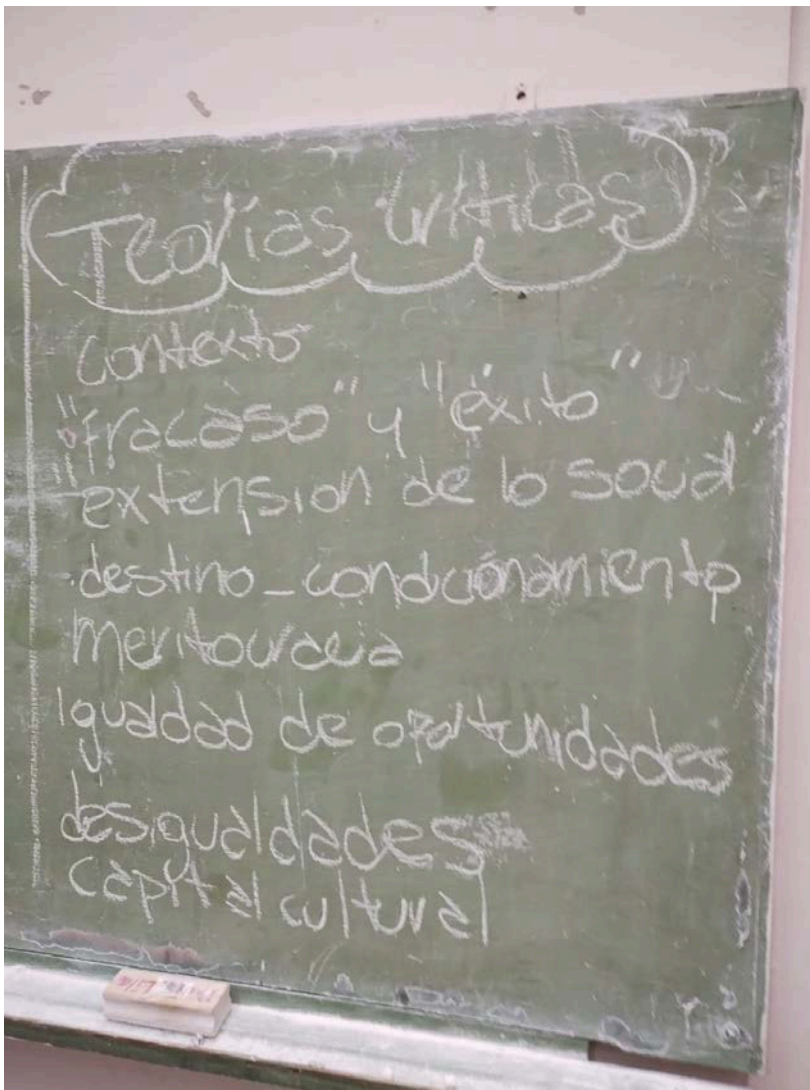 Teorías críticas
contexto
"fracaso" y "éxito"
extension de lo social
destino - condicionamiento
meritocracia
igualdad de oportunidades
desigualdades
capital cultural